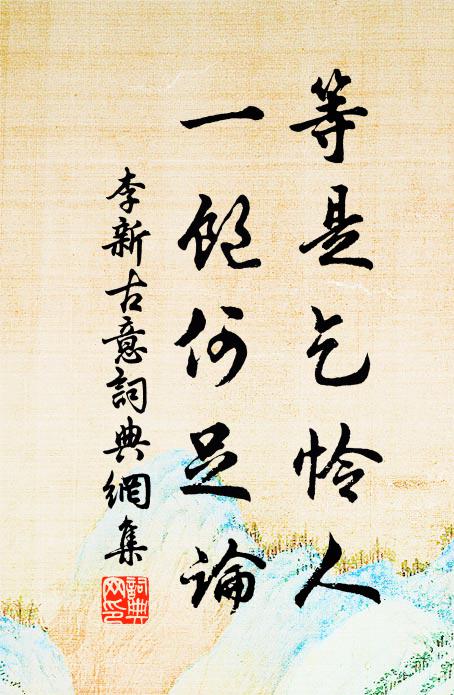 等是乞怜人
一飽何足論
李新古意詞典網集
詞典网印